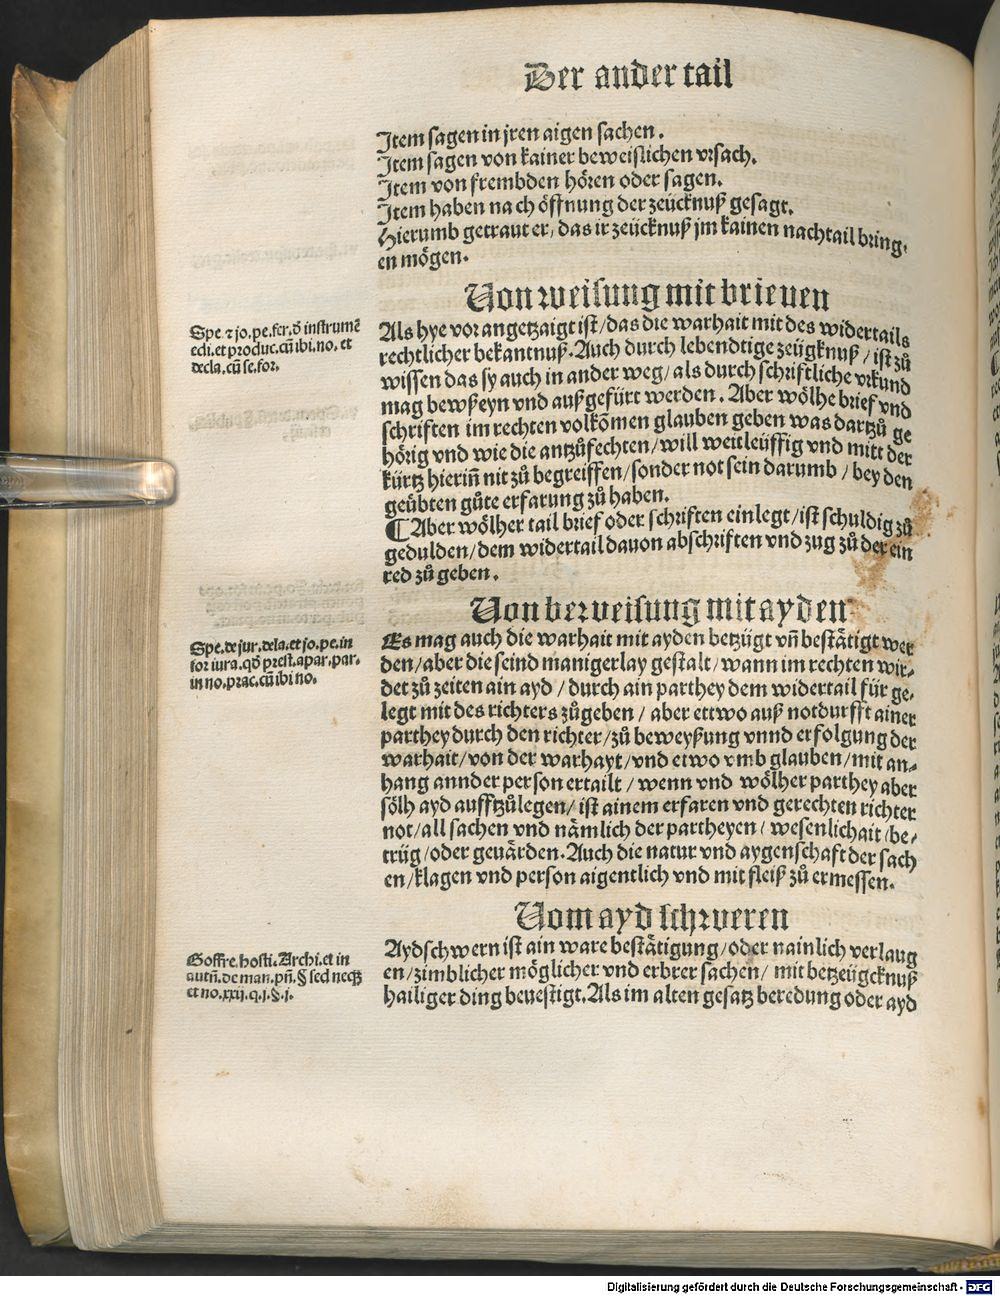 Der ander tail
Item sagen in jren aigen sachen.
Item sagen von kainer beweislichen vrsach.
Item von frembden hören oder sagen.
Item haben nach öffnung der zeücknuß gesagt.
Hierumb getraut er, das ir zeücknuß jm kainen nachtail bring-
en mögen.
Von weisung mit brieuen
Spe ⁊ jo. pe. fer. ō instrumē
edi. et produc. cū ibi. no. et
decla. cū se. for.
Als hye vor angetzaigt ist/das die warhait mit des widertails
rechtlicher bekantnuß. Auch durch lebendtige zeügknuß/ist zů
wissen das sy auch in ander weg/als durch schriftliche vrkund
mag bewßeyn vnd außgefürt werden. Aber wölhe brief vnd
schriften im rechten volkōmen glauben geben was dartzů ge
hörig vnd wie die antzůfechten/will weitleüffig vnd mitt der
kürtz hierin̄ nit zů begreiffen/sonder not sein darumb/bey den
geübten gůte erfarung zů haben.
¶ Aber wölher tail brief oder schriften einlegt/ist schuldig zů
gedulden/dem widertail dauon abschriften vnd zug zů der ein
red zů geben.
Von beweisung mit ayden
Spe. de jur. dela. et jo. pe. in
for iura. qō prest. a par. par.
in no. prac. cū ibi no.
Es mag auch die warhait mit ayden betzügt vn̄ bestätigt wer
den/aber die seind manigerlay gestalt/wann im rechten wir-
det zů zeiten ain ayd/durch ain parthey dem widertail für ge-
legt mit des richters zůgeben/aber ettwo auß notdurfft ainer
parthey durch den richter/zů beweyßung vnnd erfolgung der
warhait/von der warhayt/vnd etwo vmb glauben/mit an-
hang annder person ertailt/wenn vnd wölher parthey aber
sölh ayd aufftzůlegen/ist ainem erfaren vnd gerechten richter
not/all sachen vnd nämlich der partheyen/wesenlichait/be-
trüg/oder geuärden. Auch die natur vnd aygenschaft der sach
en/klagen vnd person aigentlich vnd mit fleiß zů ermessen.
Vom ayd schweren
Goffre. hosti. Archi. et in
autn̄. de man. pn̄. § sed necꝫ
et no. xxij. q. j. §. j.
Aydschwern ist ain ware bestätigung/oder nainlich verlaug
en/zimblicher möglicher vnd erbrer sachen/mit betzeügcknuß
hailiger ding beuestigt. Als im alten gesatz beredung oder ayd
Digitalisierung gefördert durch die Deutsche Forschungsgemeinschaft - DFG